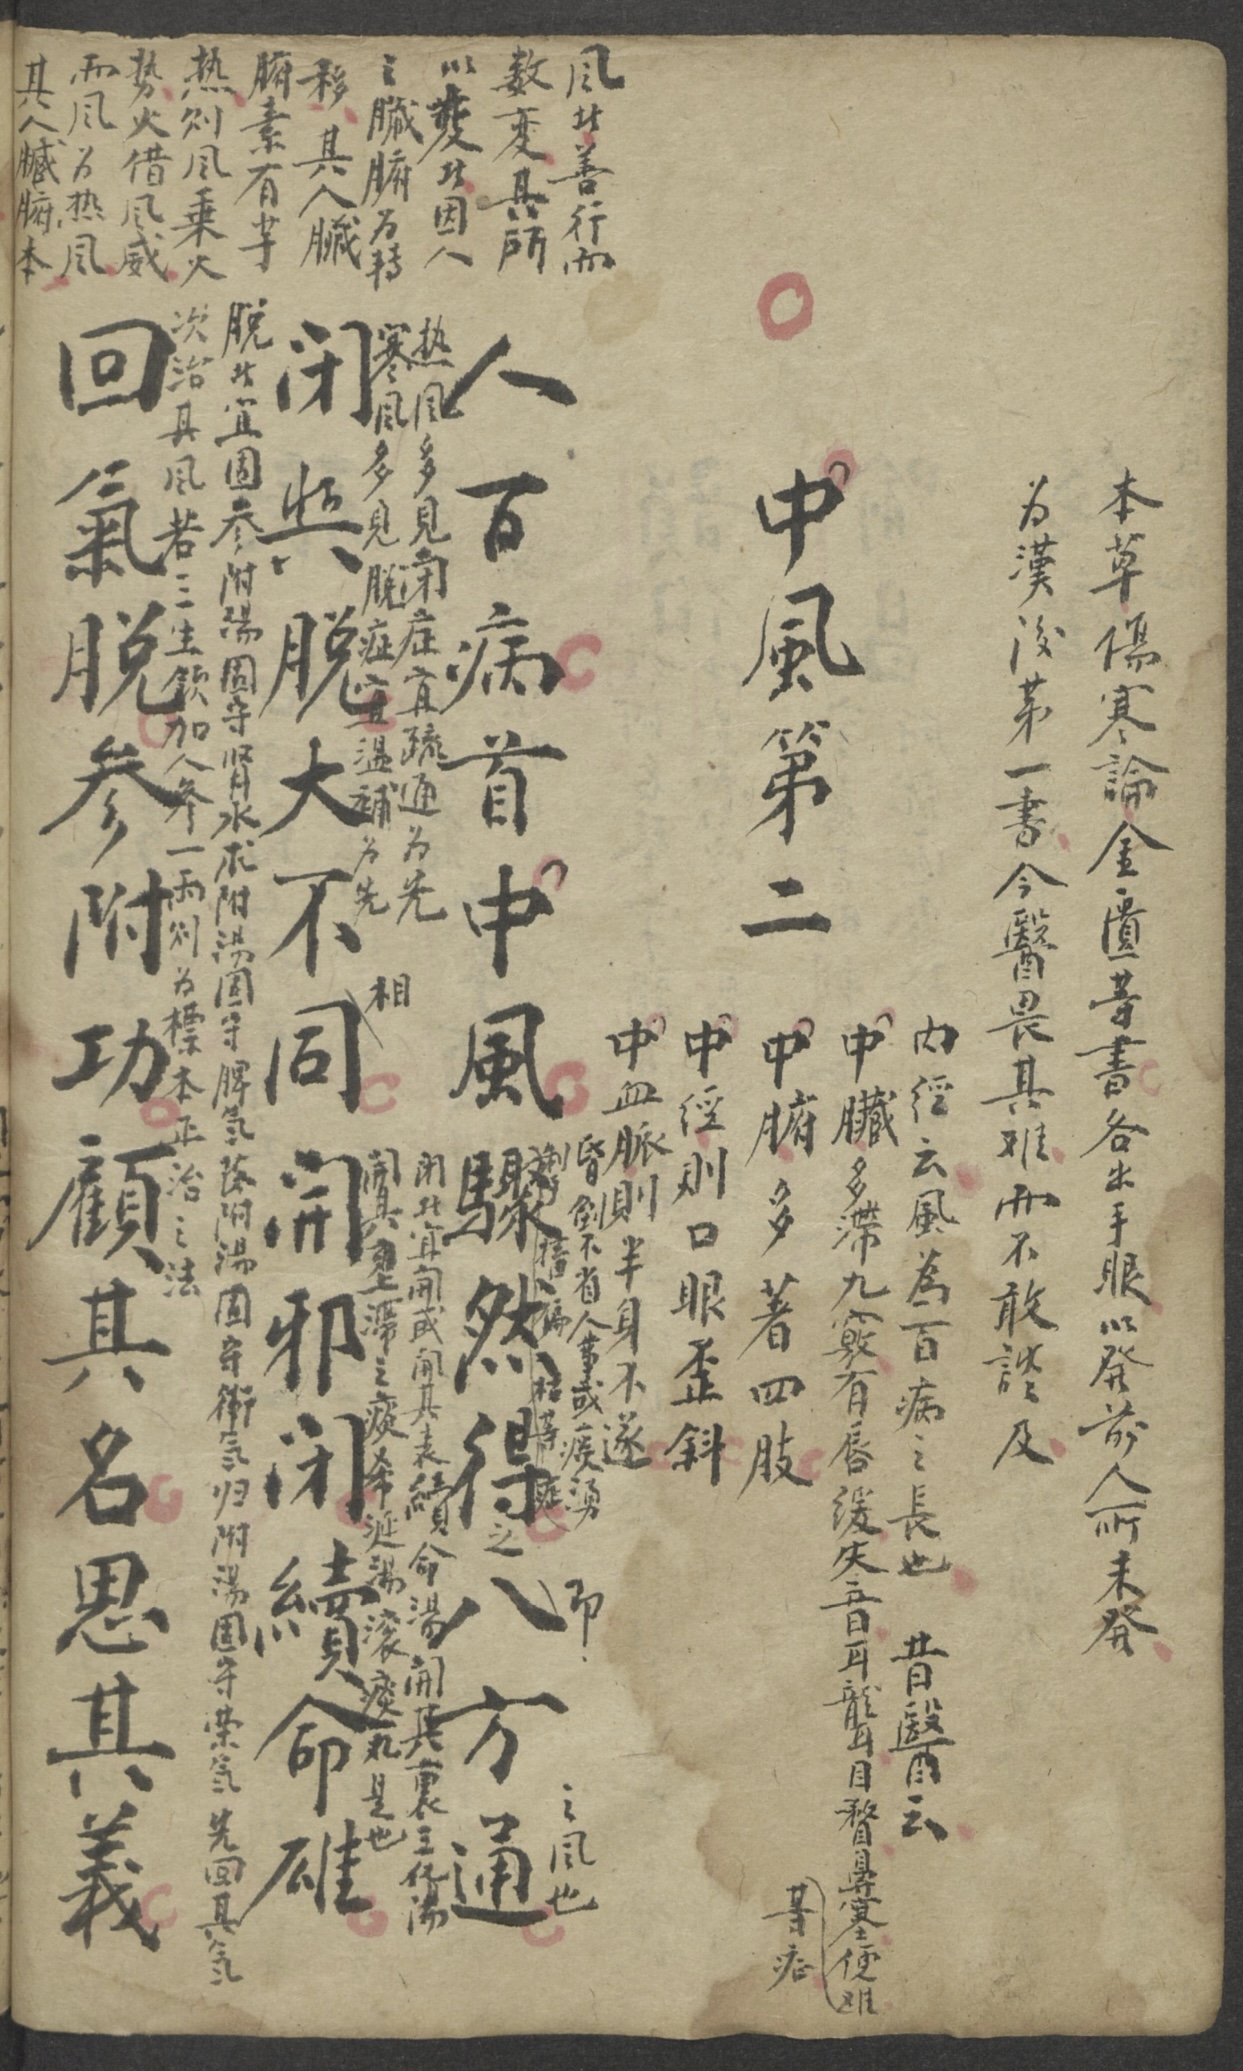 本草傷寒論金匱等書各出手眼以發前人所未發
为漢後第一書今醫畏其难而不敢談及
中風第二
内徑云風為百病之長也 昔醫云
中臟多滯九竅有唇缓失音耳聾目瞀鼻塞便难
等症
中腑多著四肢
中徑則口眼歪斜
中血脈則半身不遂
风者善行而
数变其所
以變者因人
之臟腑为转
移其人臟
腑素有
热则风乘火
势火借风威
而风为热风
其人臟腑本
人百病首中風驟然得之八方通
即
之风也
昏倒不省人事或痰湧
偏枯等症
热风多見闭症宜疏通为先
寒风多見脱症宜温補为先
闭與脱大不同開邪闭續命雄
相
闭者宜開或開其表續命湯開其裏三化湯
開其壅滯之痰希涎湯滚痰丸是也
脱者宜固参附湯固守肾水术附湯固守脾氣茋附湯固守衛氣归附湯固守荣氣先回其氣
次治其风若三生飲加人参一兩则为標本正治之法
回氣脱参附功顧其名思其義